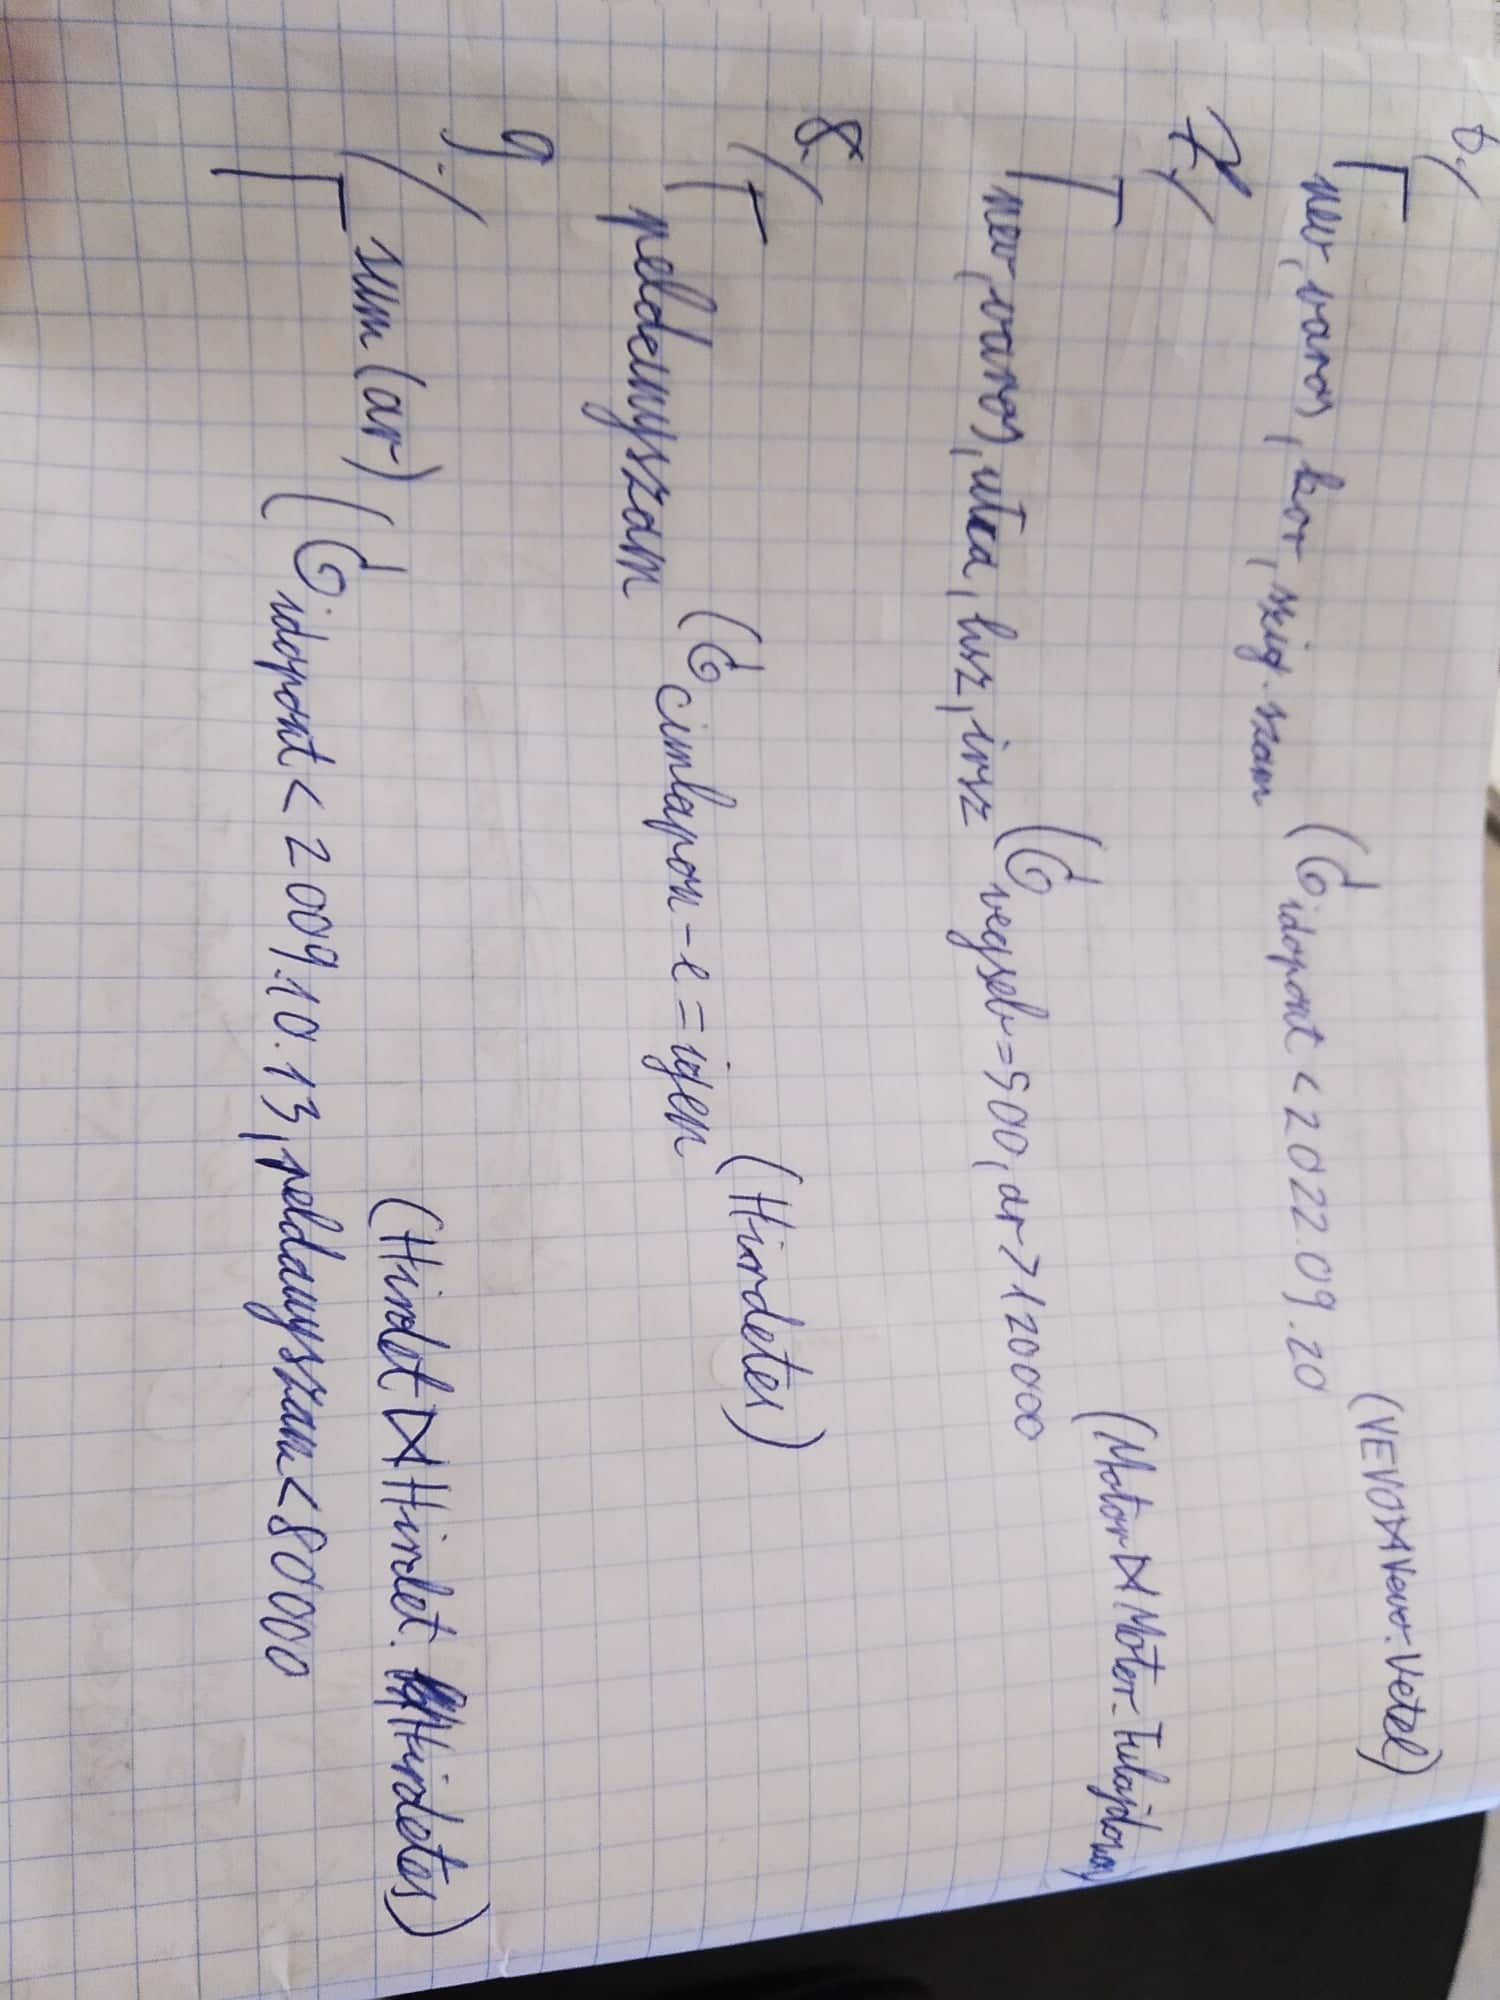 6./
Γ nev, varos, kor, szig.szam (σ idopont < 2022.09.20 (VEVO⋈Vevo-Vetel)
7./
Γ nev, varos, utca, hsz, irsz (σ vegseb=500, ar>120000 (Motor⋈Motor-Tulajdonos)
8./
Γ peldeınyszam (σ cimlapon-e=igen (Hirdetes)
9./
Γ sum(ar) (σ idopont < 2009.10.13, peldanyszam<80000 (Hirdet⋈Hirdet.Hirdetes)